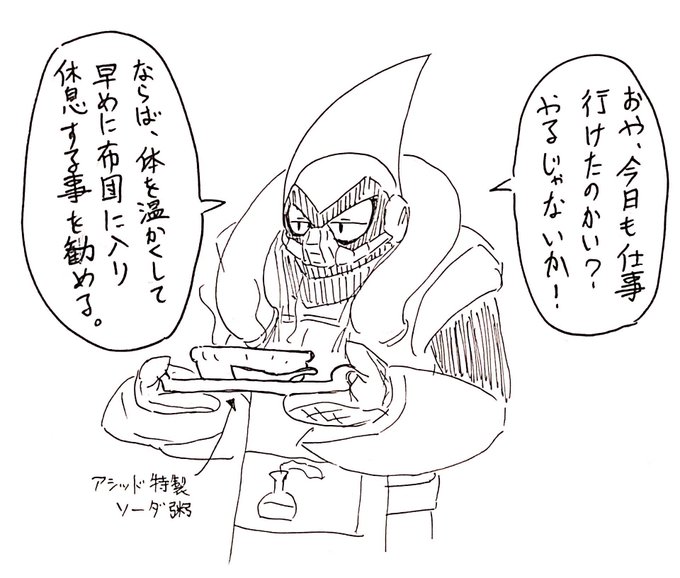 おや、今日も仕事
行けたのかい？
やるじゃないか！
ならば、体を温かくして
早めに布団に入り
休息する事を勧める。
アシッド特製
ソーダ粥